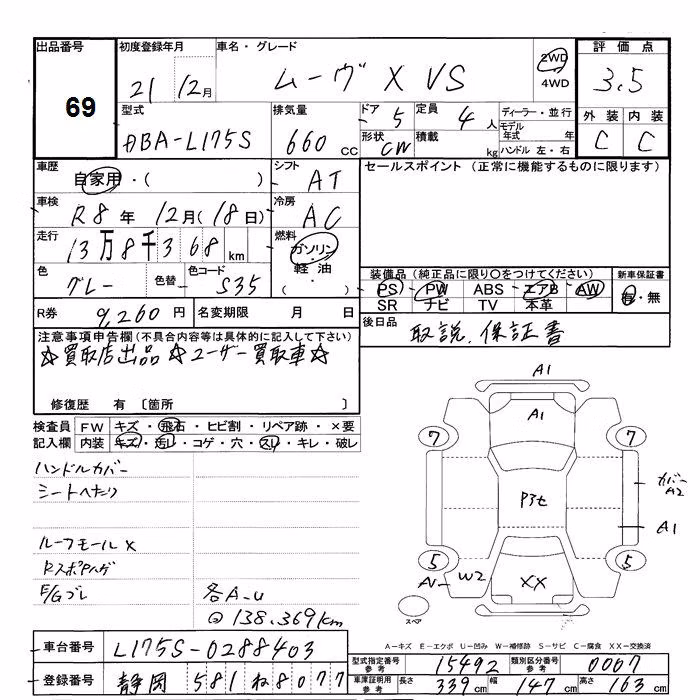 出品番号
69
初度登録年月
21 12月
車名・グレード
ムーヴ X VS
2WD
4WD
評価点
3.5
外装 内装
C C
型式
DBA-L175S
排気量
660 cc
ドア 5
定員 4 人
形状 CW
積載 kg
ディーラー・並行
モデル年式 年
ハンドル 左・右
車歴
自家用・( )
シフト
AT
車検
R8年 12月(18日)
冷房
AC
走行
13万8千368km
燃料
ガソリン
軽油
・( )
色
グレー
色替
色コード
S35
セールスポイント (正常に機能するものに限ります)
装備品(純正品に限り○をつけてください)
PS PW ABS エアB AW
SR ナビ TV 本革
新車保証書
有・無
R券
9,260円
名変期限 月 日
後日品
取説、保証書
注意事項申告欄(不具合内容等は具体的に記入して下さい)
☆買取店出品☆ユーザー買取車☆
修復歴 有〔箇所 〕
検査員記入欄
FW キズ・飛石・ヒビ割・リペア跡・×要
内装 キズ・汚レ・コゲ・穴・スレ・キレ・破レ
ハンドルカバー
シートヘタリ
ルーフモール X
Rスポアハゲ
F/Gズレ
各A-U
◎138.369km
A1
A1
7
7
Pアセ
カバーA2
A1
5
5
A1
W2
XX
スペア
A-キズ E-エクボ U-凹み W-補修跡 S-サビ C-腐食 XX-交換済
車台番号
L175S-0288403
登録番号
静岡 581 ね 8077
型式指定番号 参考
15492
類別区分番号 参考
0007
車庫証明用 参考
長さ 339cm
幅 147cm
高さ 163cm